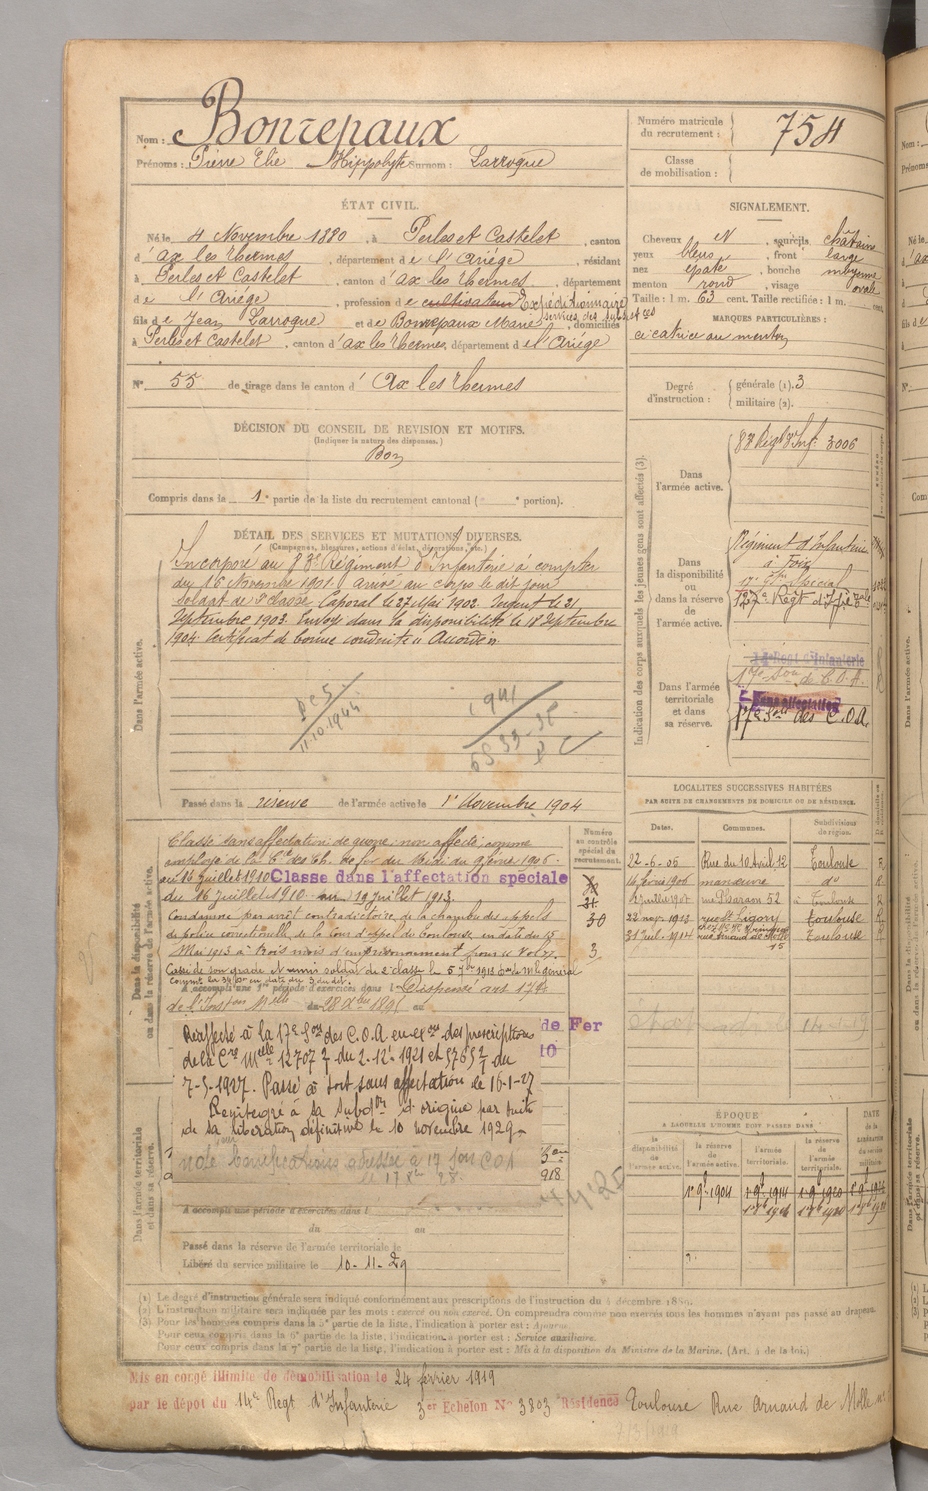 Nom : Bonrepaux
Prénoms : Pierre Elie Hippolyte Surnom : Larroque
Numéro matricule du recrutement : 754
Classe de mobilisation :
ÉTAT CIVIL.
Né le 4 Novembre 1880, à Perles et Castelet, canton
d'ax les thermes, département de l'Ariège, résidant
à Perles et Castelet, canton d'ax les thermes, département
de l'Ariège, profession de cultivateur Expéditionnaire
fils de Jean Larroque et de Bonrepaux Marie, domiciliés
à Perles et Castelet, canton d'ax les thermes, département de l'Ariège
N° 55 de tirage dans le canton d'Ax les thermes
SIGNALEMENT.
Cheveux N, sourcils châtains
yeux bleus, front large
nez épaté, bouche moyenne
menton rond, visage ovale
Taille : 1 m. 63 cent. Taille rectifiée : 1 m. cent.
MARQUES PARTICULIÈRES :
cicatrice au menton
Degré d'instruction : générale (1). 3
militaire (2).
DÉCISION DU CONSEIL DE REVISION ET MOTIFS.
(Indiquer la nature des dispenses.)
Bon
Compris dans la 1e partie de la liste du recrutement cantonal ( e portion).
DÉTAIL DES SERVICES ET MUTATIONS DIVERSES.
(Campagnes, blessures, actions d'éclat, décorations, etc.)
Dans l'armée active.
Incorporé au 83e Régiment d'Infanterie à compter
du 16 Novembre 1901. arrivé au corps le dit jour
soldat de 2e classe. Caporal le 27 Mai 1902. Sergent le 21
Septembre 1903. Envoyé dans la disponibilité le 18 Septembre
1904. Certificat de bonne conduite "Accordé"
11.10.1944
1941
Passé dans la réserve de l'armée active le 1er Novembre 1904
Indication des corps auxquels les jeunes gens sont affectés (3).
Dans l'armée active.
83e Régt d'Inf. 3006
Dans la disponibilité ou dans la réserve de l'armée active.
Régiment d'Infanterie
à Foix
127e Régt d'Infrie
Dans l'armée territoriale et dans sa réserve.
17e Son de C.O.A.
Sans affectation
17e Son des C.O.A.
LOCALITÉS SUCCESSIVES HABITÉES
PAR SUITE DE CHANGEMENTS DE DOMICILE OU DE RÉSIDENCE.
Dates. Communes. Subdivisions de région.
22-6-05 Rue du 10 Avril, 12 Toulouse
16 février 1906 manœuvre do
2 juillet 1907 rue Pharaon 52 à Toulouse
22 nov. 1913 rue St Ligory Toulouse
31 Juil. 1914 rue Arnaud de Molle 15 Toulouse
Dans la disponibilité ou dans la réserve de l'armée active.
Numéro au contrôle spécial du recrutement.
Classé dans affectation de guerre, non affecté, comme
employé de la Cie des Ch. de fer du Midi du 9 février 1906
au 16 juillet 1910 Classé dans l'affectation spéciale
du 16 juillet 1910 au 19 juillet 1913.
Condamné par arrêt contradictoire de la chambre des appels
de police correctionelle de la Cour d'appel de Toulouse en date du 15
Mai 1913 à trois mois d'emprisonnement pour "vol".
Cassé de son grade et remis soldat de 2e classe le 5 7bre 1913
30
A accompli une 1re période d'exercices dans l Dispensé art.
du 28 Xbre 1895 au
de Fer
10
Réaffecté à la 17e Son des C.O.A. en exon des prescriptions
de la Cre Melle 12707 du 2-12-1921 et 5765 du
7-5-1927. Passé à tort sans affectation le 16-1-27
Réintégré à sa subdon d'origine par suite
de sa libération définitive le 10 novembre 1929.
918
Dans l'armée territoriale et dans sa réserve.
A accompli une période d'exercices dans l
du au
Passé dans la réserve de l'armée territoriale le
Libéré du service militaire le 10-11-29
ÉPOQUE
A LAQUELLE L'HOMME DOIT PASSER DANS
la disponibilité de l'armée active. la réserve de l'armée active. l'armée territoriale. la réserve de l'armée territoriale. DATE de la LIBÉRATION du service militaire.
1er 9b 1904 1er 9b 1914
(1) Le degré d'instruction générale sera indiqué conformément aux prescriptions de l'instruction du 4 décembre 1889.
(2) L'instruction militaire sera indiquée par les mots : exercé ou non exercé. On comprendra comme non exercés tous les hommes n'ayant pas passé au drapeau.
(3) Pour les hommes compris dans la 5e partie de la liste, l'indication à porter est : Ajourné.
Pour ceux compris dans la 6e partie de la liste, l'indication à porter est : Service auxiliaire.
Pour ceux compris dans la 7e partie de la liste, l'indication à porter est : Mis à la disposition du Ministre de la Marine. (Art. 4 de la loi.)
Mis en congé illimité de démobilisation le 24 février 1919
par le dépôt du 14e Régt d'Infanterie 3er Echelon N° 3803 Résidence Toulouse Rue Arnaud de Molle